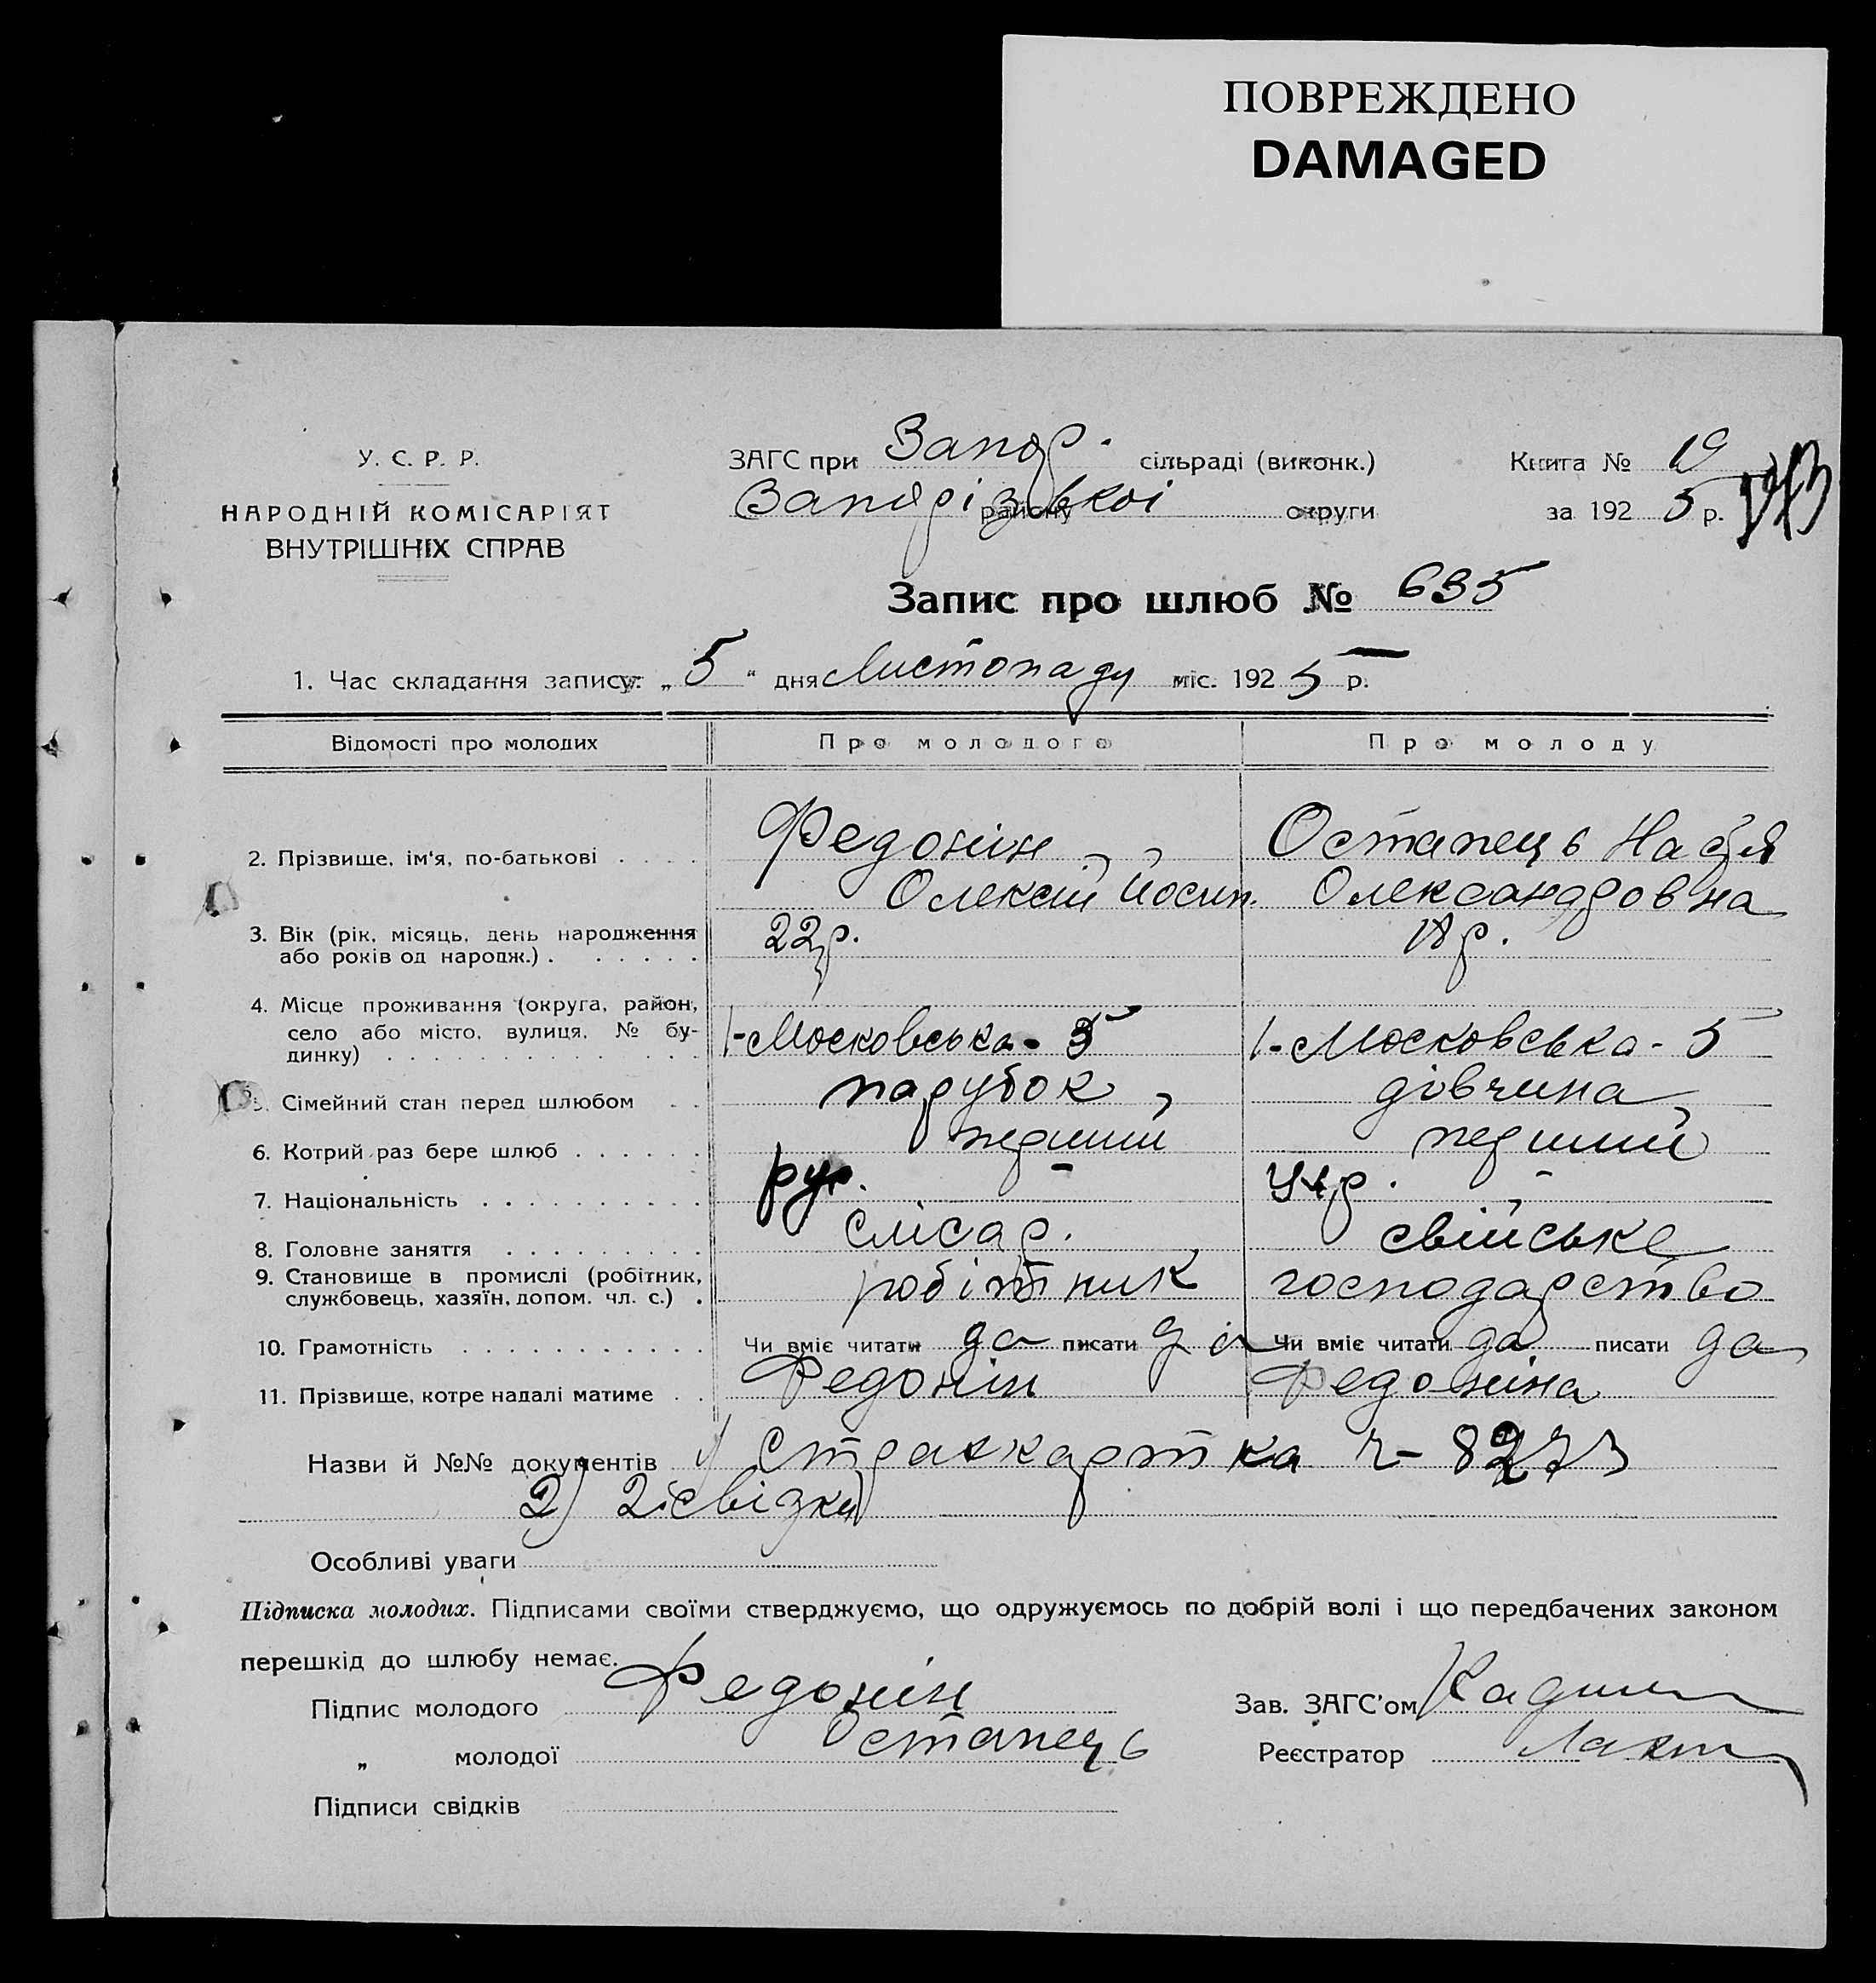 ПОВРЕЖДЕНО
DAMAGED
У. С. Р. Р.
НАРОДНІЙ КОМІСАРІЯТ
ВНУТРІШНІХ СПРАВ
ЗАГС при Запор. сільраді (виконк.)
району Запорізької округи
Книга № 19
за 1925 р.
Запис про шлюб № 635
1. Час складання запису: „5“ дня Листопаду міс. 1925 р.
Відомості про молодих Про молодого Про молоду
2. Прізвище, ім'я, по-батькові . . . . Федонін Остапець Настя
Олексій Йосип. Олександровна
3. Вік (рік, місяць, день народження 22 р. 18 р.
або років од народж.) . . . . . .
4. Місце проживання (округа, район,
село або місто, вулиця, № бу- І-Московська - 5 І-Московська - 5
динку) . . . . . . . . . . . . .
5. Сімейний стан перед шлюбом . . парубок, дівчина,
6. Котрий раз бере шлюб . . . . . . перший перший
7. Національність . . . . . . . . . . рус. Укр.
8. Головне заняття . . . . . . . . . слюсар. свійське
9. Становище в промислі (робітник, робітник господарство
службовець, хазяїн, допом. чл. с.) .
10. Грамотність . . . . . . . . . . . Чи вміє читати да писати да Чи вміє читати да писати да
11. Прізвище, котре надалі матиме . . Федонін Федоніна
Назви й №№ документів 1) Страхкартка ч- 8273
2) 2 свідки
Особливі уваги
Підписка молодих. Підписами своїми стверджуємо, що одружуємось по добрій волі і що передбачених законом
перешкід до шлюбу немає.
Підпис молодого Федонін
Зав. ЗАГС'ом
„ молодої Остапець
Реєстратор
Підписи свідків